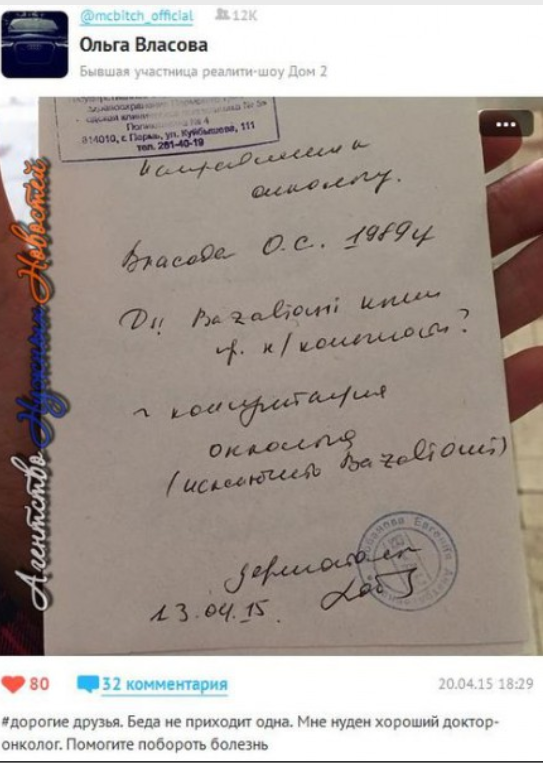 @mcbitch_official 12K
Ольга Власова
Бывшая участница реалити-шоу Дом 2
Поликлиника № 4
614010, г. Пермь, ул. Куйбышева, 111
тел. 281-40-19
Направление к
онкологу.
Власова О.С. 1989г
Ds: Bazalioma кожи
н/конечности?
консультация
онколога
(исключить Bazalioma)
дерматолог
13.04.15.
Агентство Нужных Новостей
80 32 комментария 20.04.15 18:29
#дорогие друзья. Беда не приходит одна. Мне нуден хороший доктор-
онколог. Помогите побороть болезнь